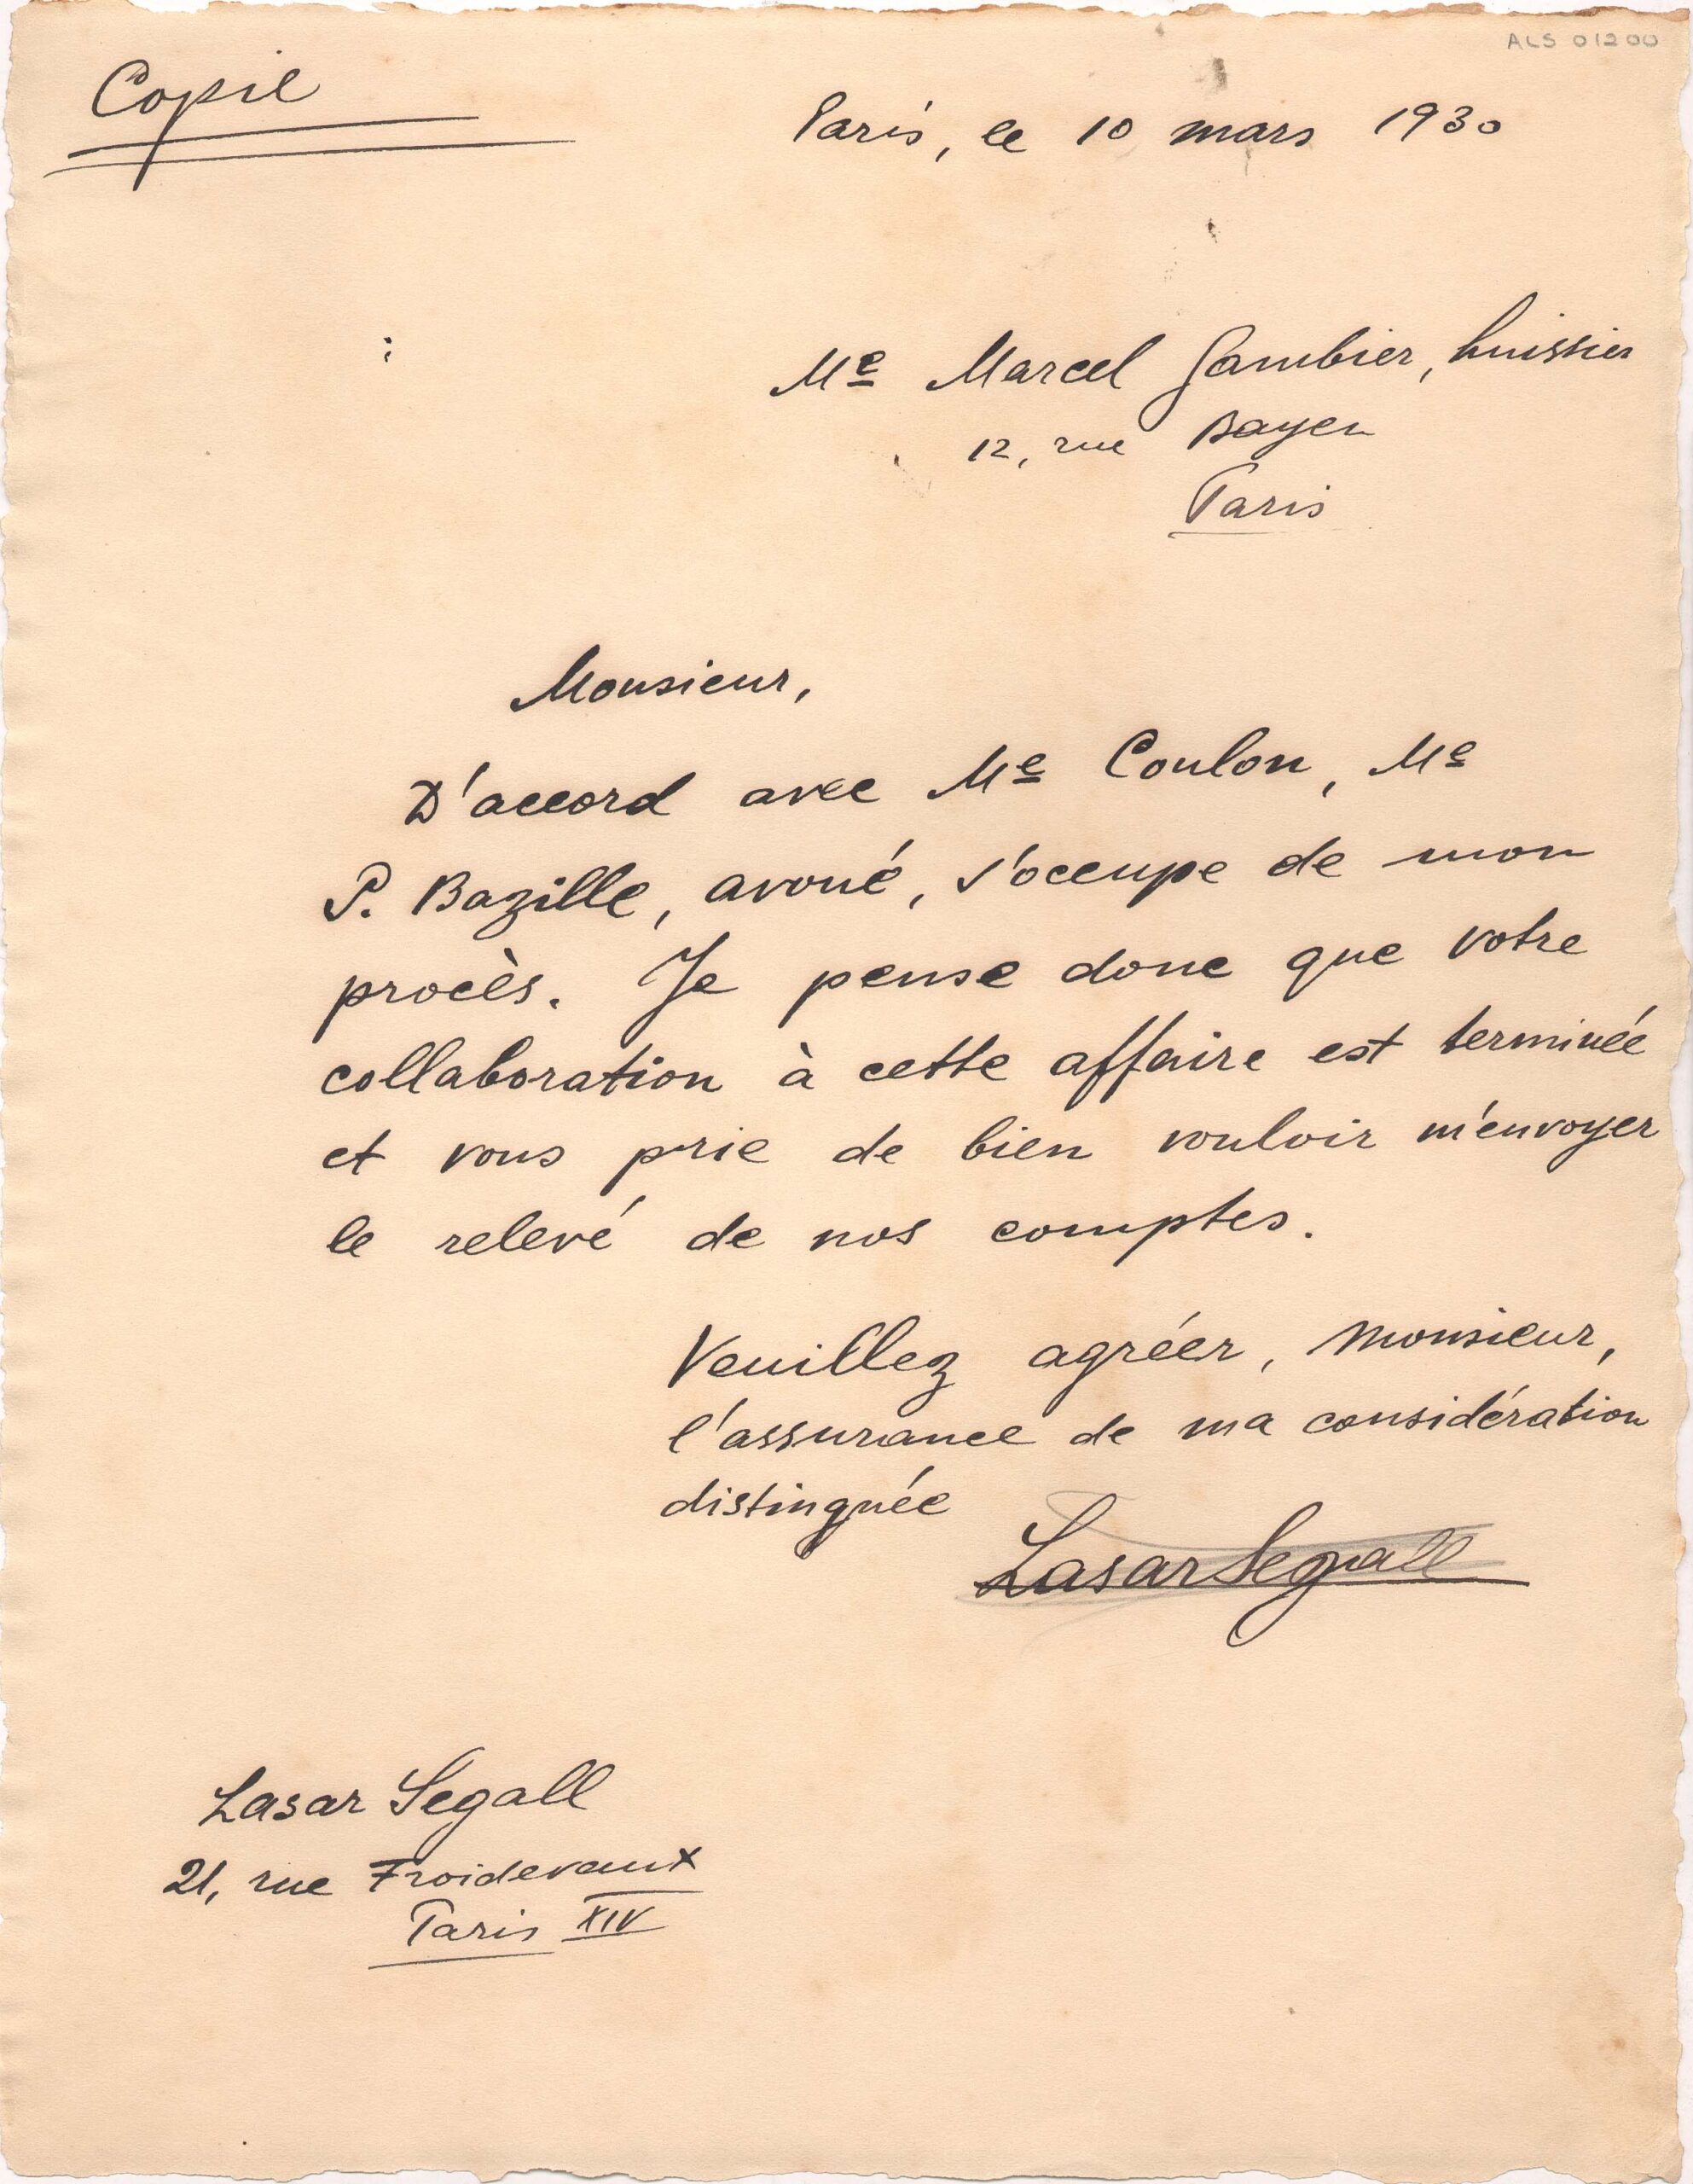 ALS 01200
Copie
Paris, le 10 mars 1930
Me Marcel Gambier, huissier
12, rue Bayen
Paris
Monsieur,
D'accord avec Me Coulon, Me
P. Bazille, avoué, s'occupe de mon
procès. Je pense donc que votre
collaboration à cette affaire est terminée
et vous prie de bien vouloir m'envoyer
le relevé de nos comptes.
Veuillez agréer, Monsieur,
l'assurance de ma considération
distinguée
Lasar Segall
Lasar Segall
21, rue Froidevaux
Paris XIV